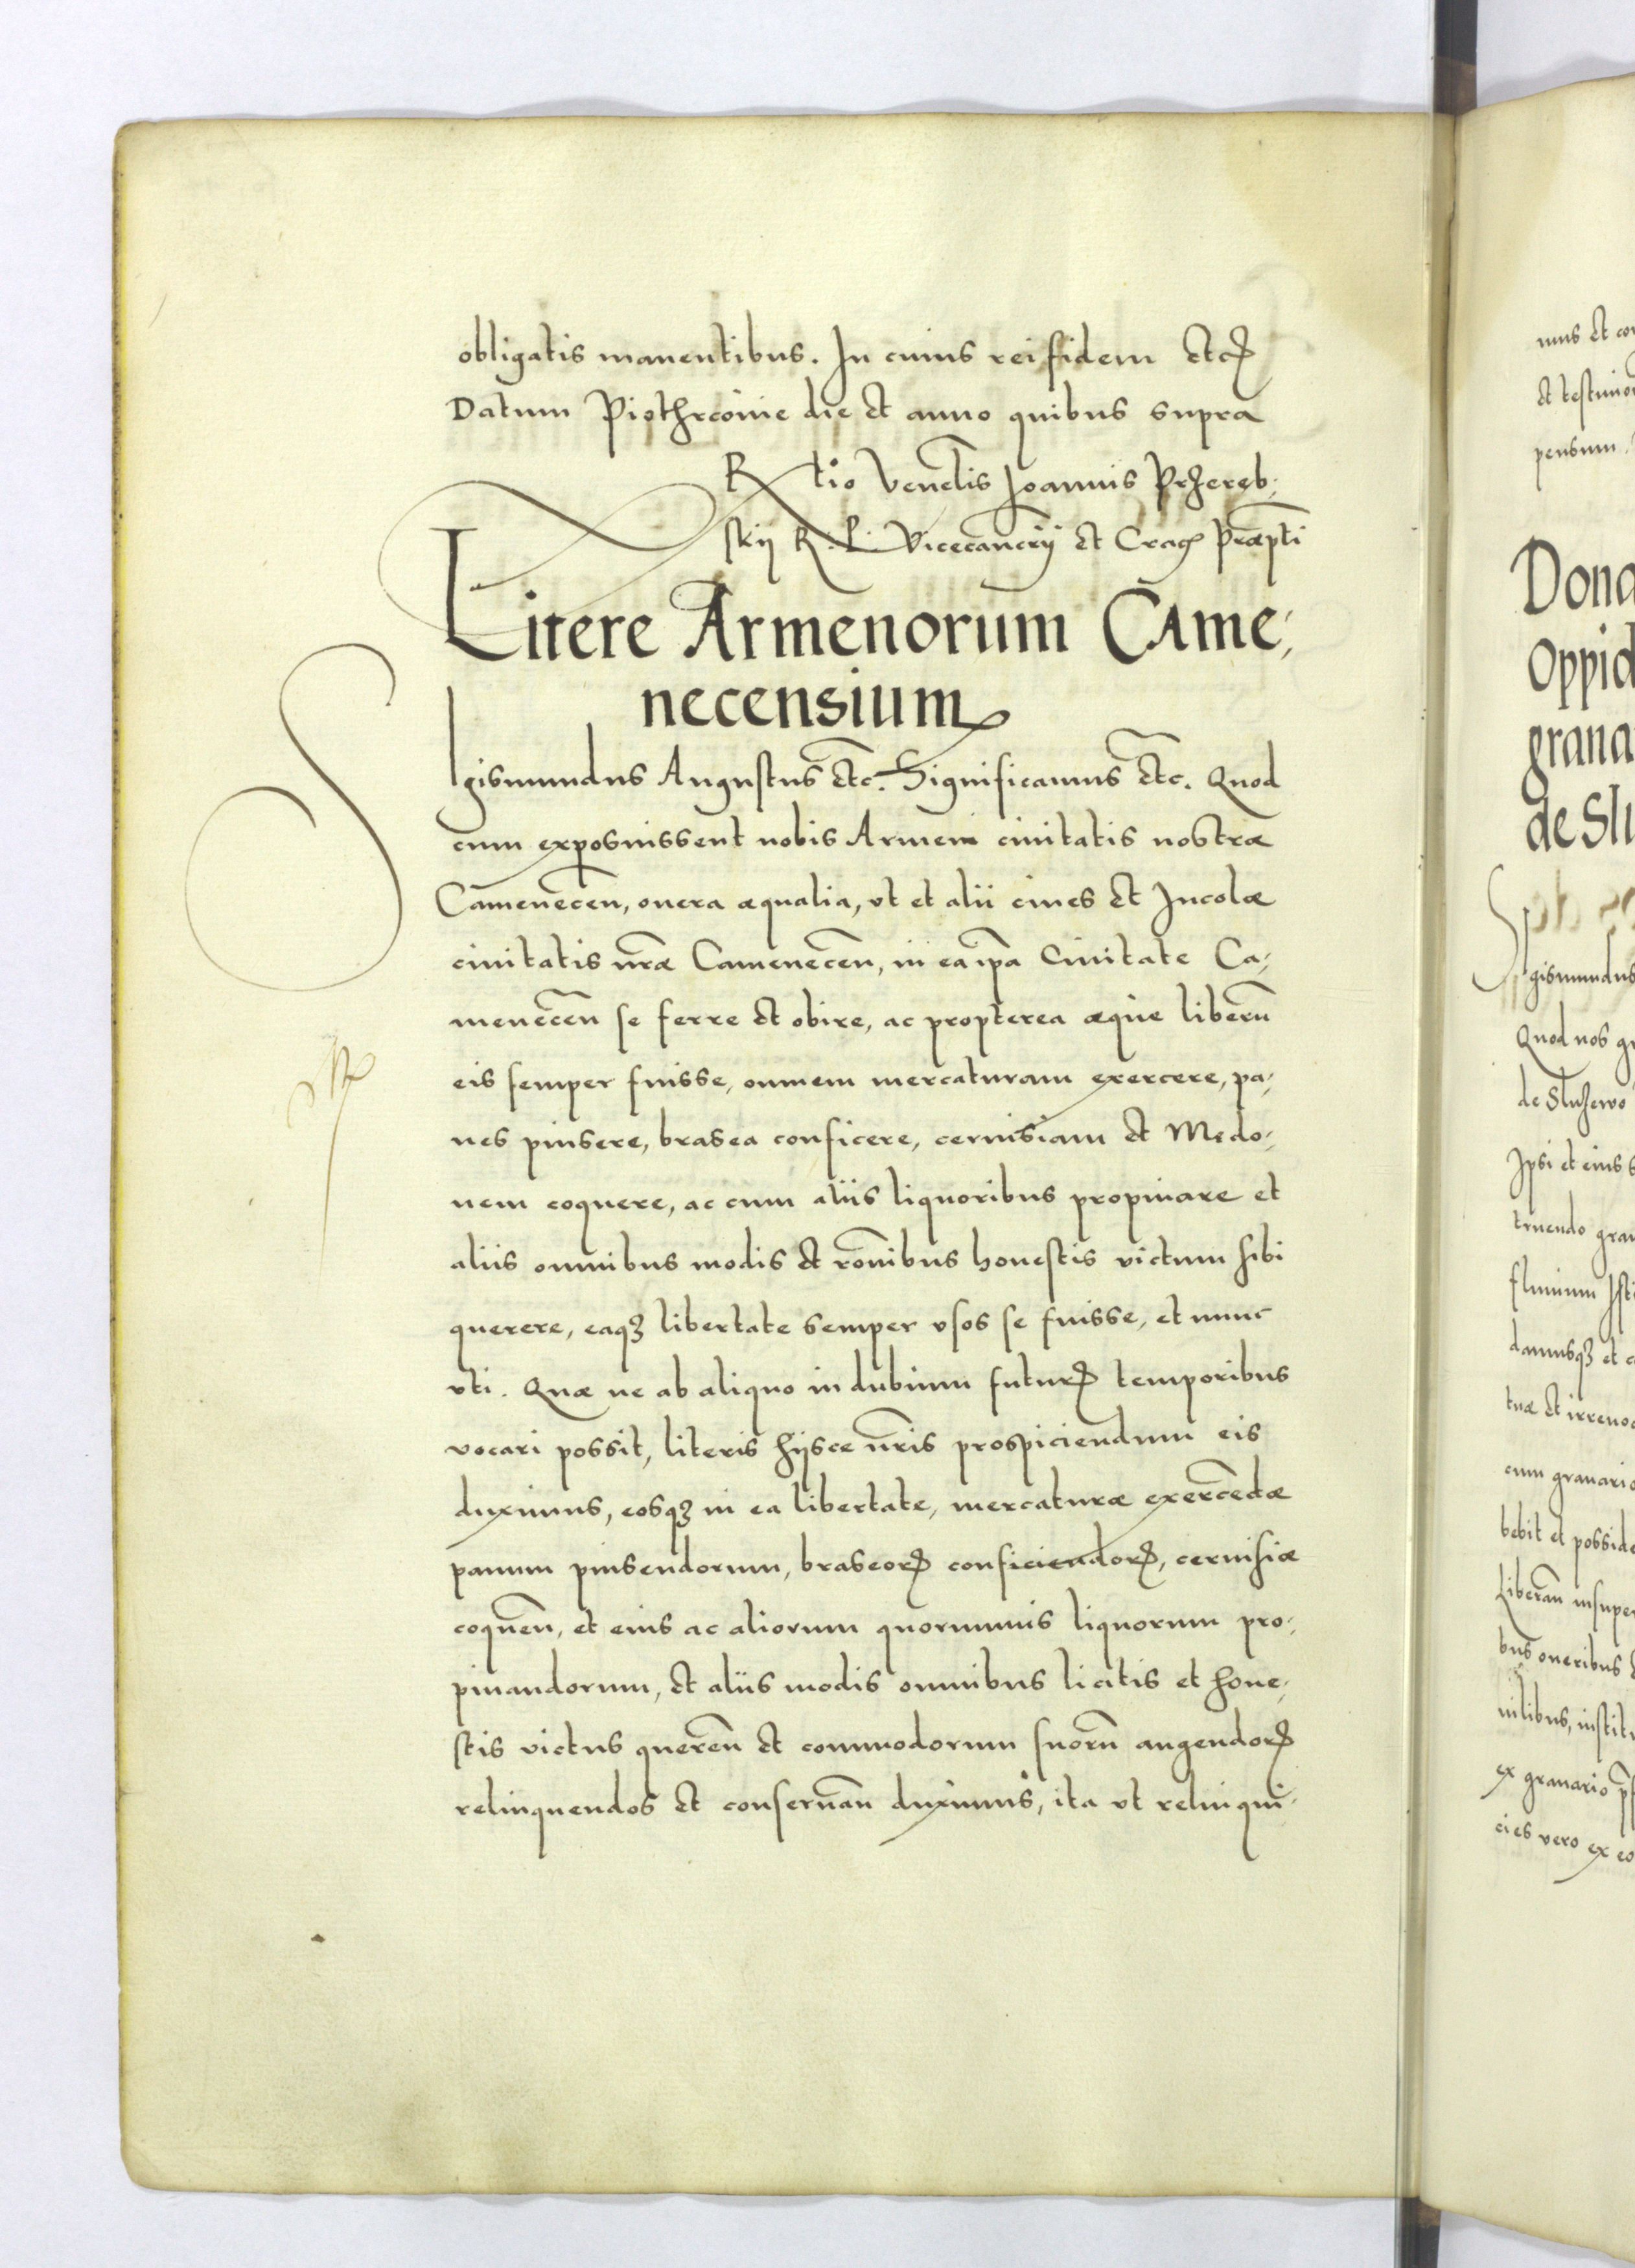 obligatis manentibus. In cuius rei fidem etcꝝ
Datum Piothrcoviæ die et anno quibus supra
Rtio Venelis Joannis Przeręb,
skij R. P. Vicecancrij et Cracꝭ Præpti
Litere Armenorum Came,
necensium
SIgismundus Augustus etc. Significamus etc. Quod
cum exposuissent nobis Armeni ciuitatis nostræ
Camenecen̄, onera æqualia, vt et alii ciues et Incolæ
ciuitatis nr̄æ Camenecen̄, in ea ip̄a Ciuitate Ca,
menecen̄ se ferre et obire, ac propterea æque liberū
eis semper fuisse, omnem mercaturam exercere, pa,
nes pinsere, brasea conficere, ceruisiam et Medo,
nem coquere, ac cum aliis liquoribus propinare et
aliis omnibus modis et rōnibus honestis victum sibi
querere, eaqꝫ libertate semper vsos se fuisse, et nunc
vti. Quæ ne ab aliquo in dubium futurꝝ temporibus
vocari possit, literis hijsce nr̄is prospiciendum eis
duximus, eosqꝫ in ea libertate, mercaturæ exercēdæ
panum pinsendorum, braseorꝝ conficiendorꝝ, ceruisiæ
coquen̄, et eius ac aliorum quorumuis liquorum pro,
pinandorum, et aliis modis omnibus licitis et hone,
stis victus queren̄ et commodorum suorū augendorꝝ
relinquendos et conseruan̄ duximus, ita vt relinqui,
mus et con
et testimon
pensum.
Dona
Oppid
grana
de Slu
Sigismundus
Quod nos gr
de Sluzewo
Ipsi et eius s
truendo gran
fluuium Ist
damusqꝫ et c
tuæ et irreuoc
cum granario
bebit et posside
Liberan̄ insuper
bus oneribus
uilibus, institu
ex granario p
cies vero ex eo